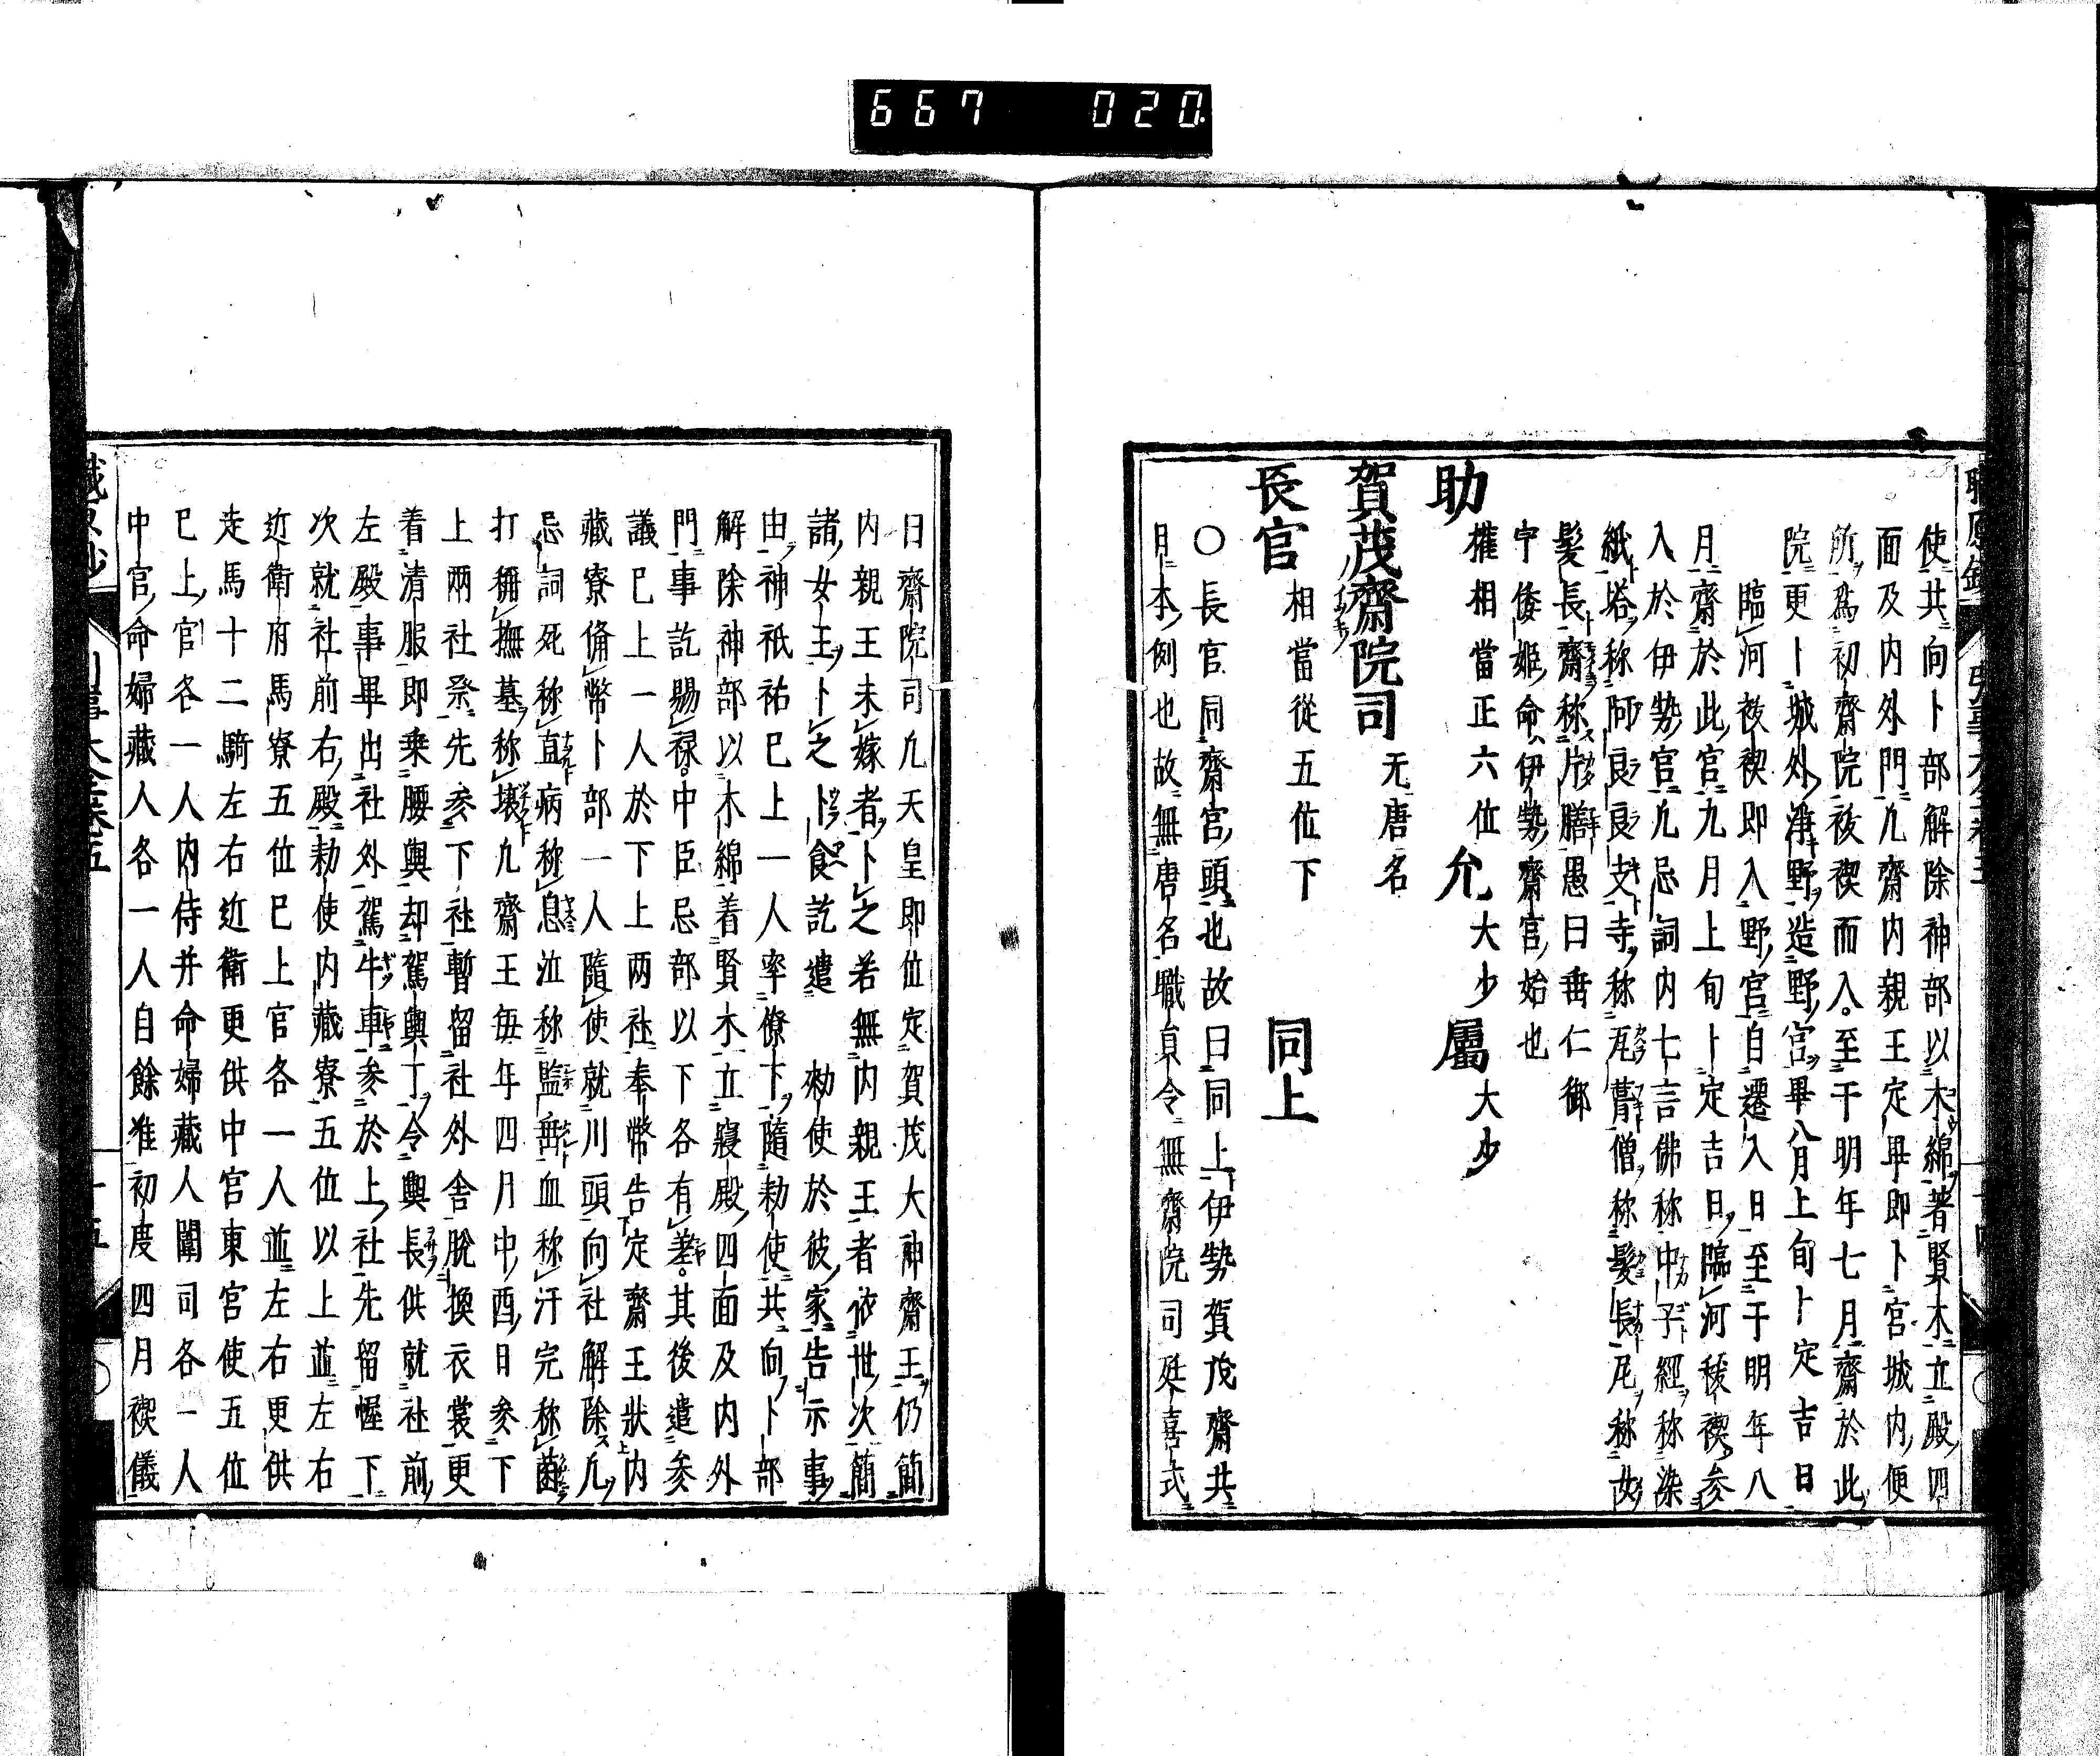 667 020
使共向卜部解除神部以木綿著賢木立殿四
面及内外門凢齋内親王定畢即卜宮城内便
所爲初齋院祓禊而入至于明年七月齋於此
院更卜城外淨野造野宮畢八月上旬卜定吉日
臨河祓禊即入野宮自遷入日至于明年八
月齋於此宮九月上旬卜定吉日臨河祓禊参
入於伊勢宮凢忌詞内七言佛称中子經称染
紙塔称阿良良支寺称瓦葺僧称髪長尼称女
髪長齋称片膳愚曰垂仁御
宇倭姫命伊勢齋宮始也
助
權相當正六位 允 大少 屬 大少
賀茂齋院司 无唐名
長官 相當從五位下 同上
○長官同齋宮頭也故曰同上伊勢賀茂齋共
月本例也故無唐名職員令無齋院司延喜式
日齋院司凢天皇即位定賀茂大神齋王仍簡
内親王未嫁者卜之若無内親王者依世次簡
諸女王卜之卜食訖遣 勅使於彼家告示事
由神祇祐巳上一人率僚下隨勅使共向卜部
解除神部以木綿着賢木立寝殿四面及内外
門事訖賜禄中臣忌部以下各有差其後遣参
議巳上一人於下上两社奉幣告定齋王狀内
藏寮備幣卜部一人隨使就川頭向社解除凢
忌詞死称直病称息泣称鹽垂血称汗宍称菌
打称撫墓称壤凢齋王毎年四月中酉日参下
上兩社祭先参下社暫留社外舎脱換衣裳更
着清服即乗腰輿却駕輿丁令輿長供就社前
左殿事畢出社外駕牛車参於上社先留幄下
次就社前右殿勅使内藏寮五位以上並左右
近衛府馬寮五位巳上官各一人並左右更供
走馬十二騎左右近衛更供中宮東宮使五位
巳上官各一人内侍并命婦藏人闈司各一人
中宮命婦藏人各一人自餘准初度四月禊儀